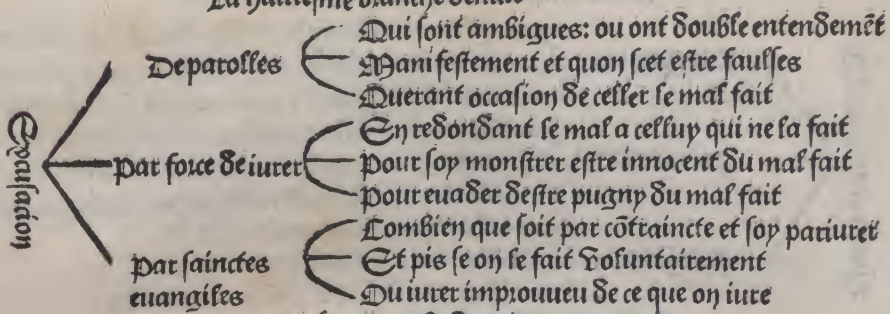 Excusation
De parolles
Qui sont ambigues: ou ont double entendemēt
Manifestement et quon scet estre faulses
Querant occasion de celler le mal fait
Par force de iurer
En redondant le mal a celluy qui ne la fait
Pour soy monstrer estre innocent du mal fait
Pour euader destre pugny du mal fait
Par sainctes
euangiles
Combien que soit par cōtraincte et soy pariurer
Et pis se on le fait voluntairement
Ou iurer improuueu de ce que on iure